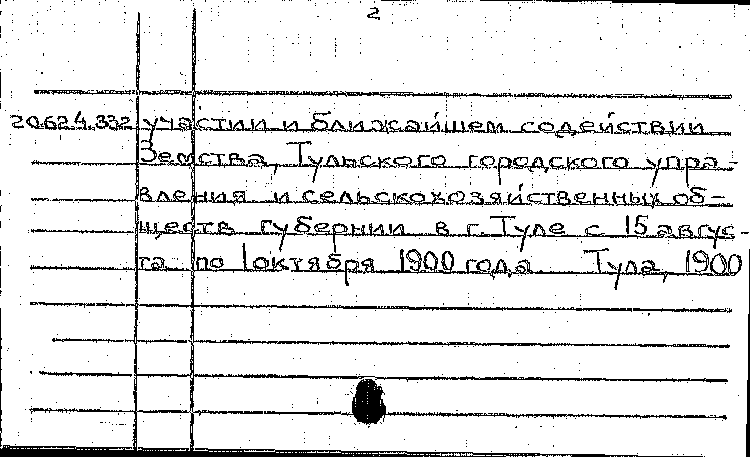 2
20.624.332 участии и ближайшем содействии
Земства, Тульского городского упра-
вления и сельскохозяйственных об-
ществ губернии в г. Туле с 15 авгус-
та по 1 октября 1900 года Тула, 1900